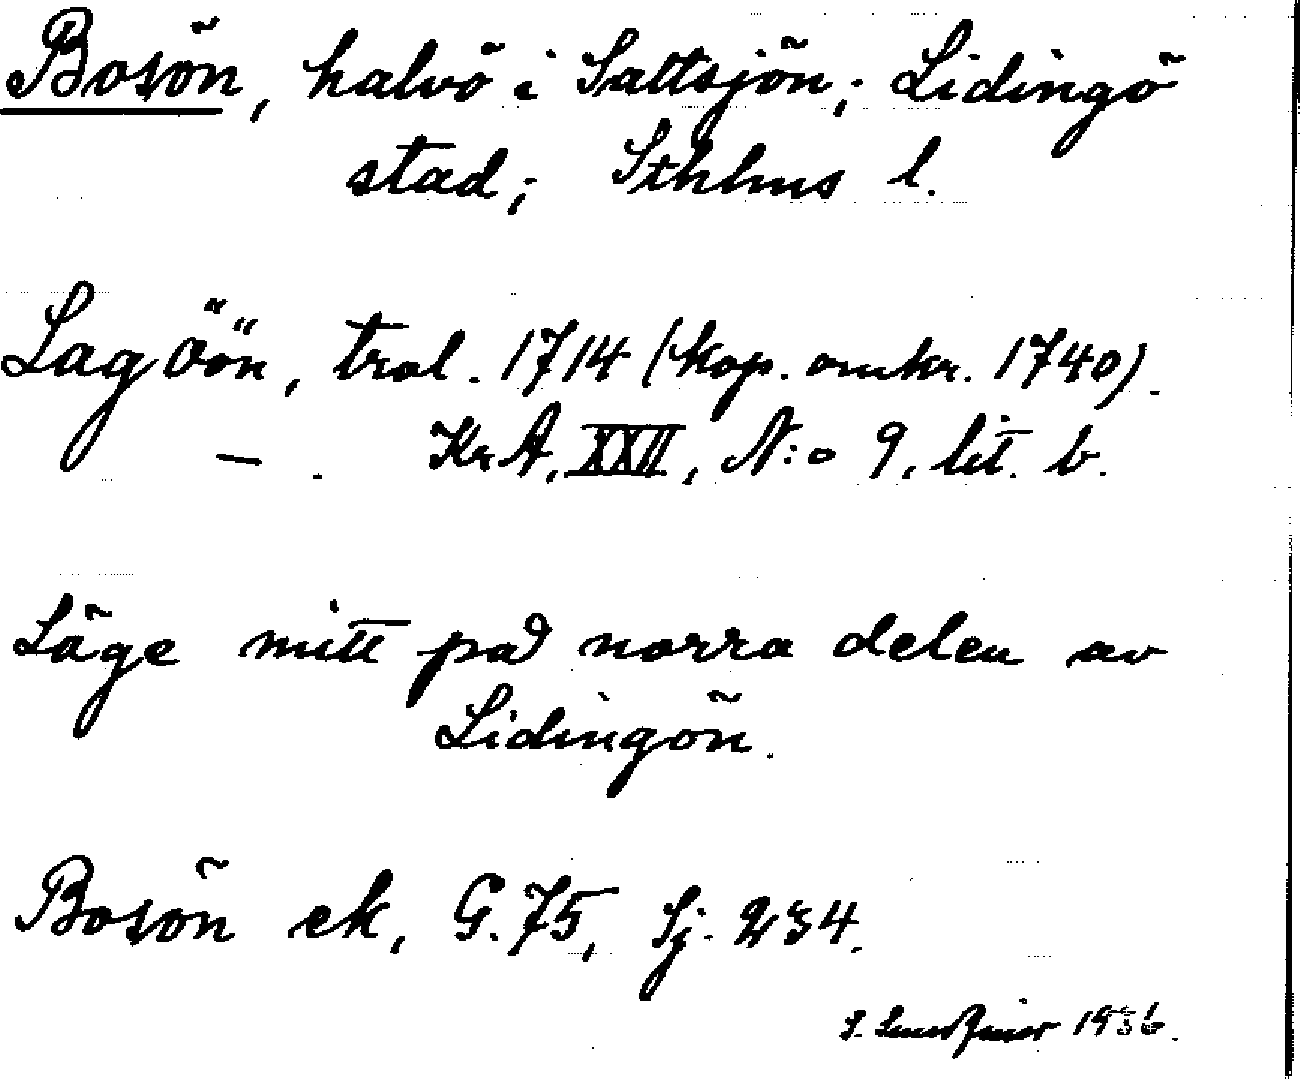 Bosön, halvö i Saltsjön; Lidingö
stad; Sthlms l.
Lag öön, trol. 1714 (kop. omkr. 1740).
— . KrA, XXII, N:o 9, lit. b.
Läge mitt på norra delen av
Lidingön.
Bosön ek, G. 75, Sj. 234.
1936.